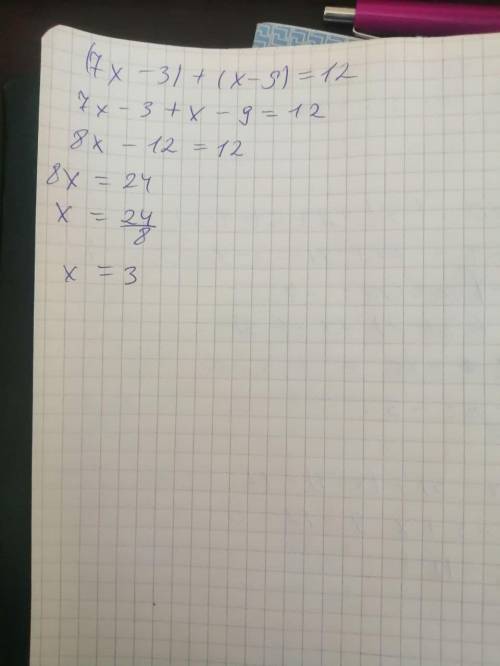 (7x - 3) + (x - 9) = 12
7x - 3 + x - 9 = 12
8x - 12 = 12
8x = 24
x = 24/8
x = 3